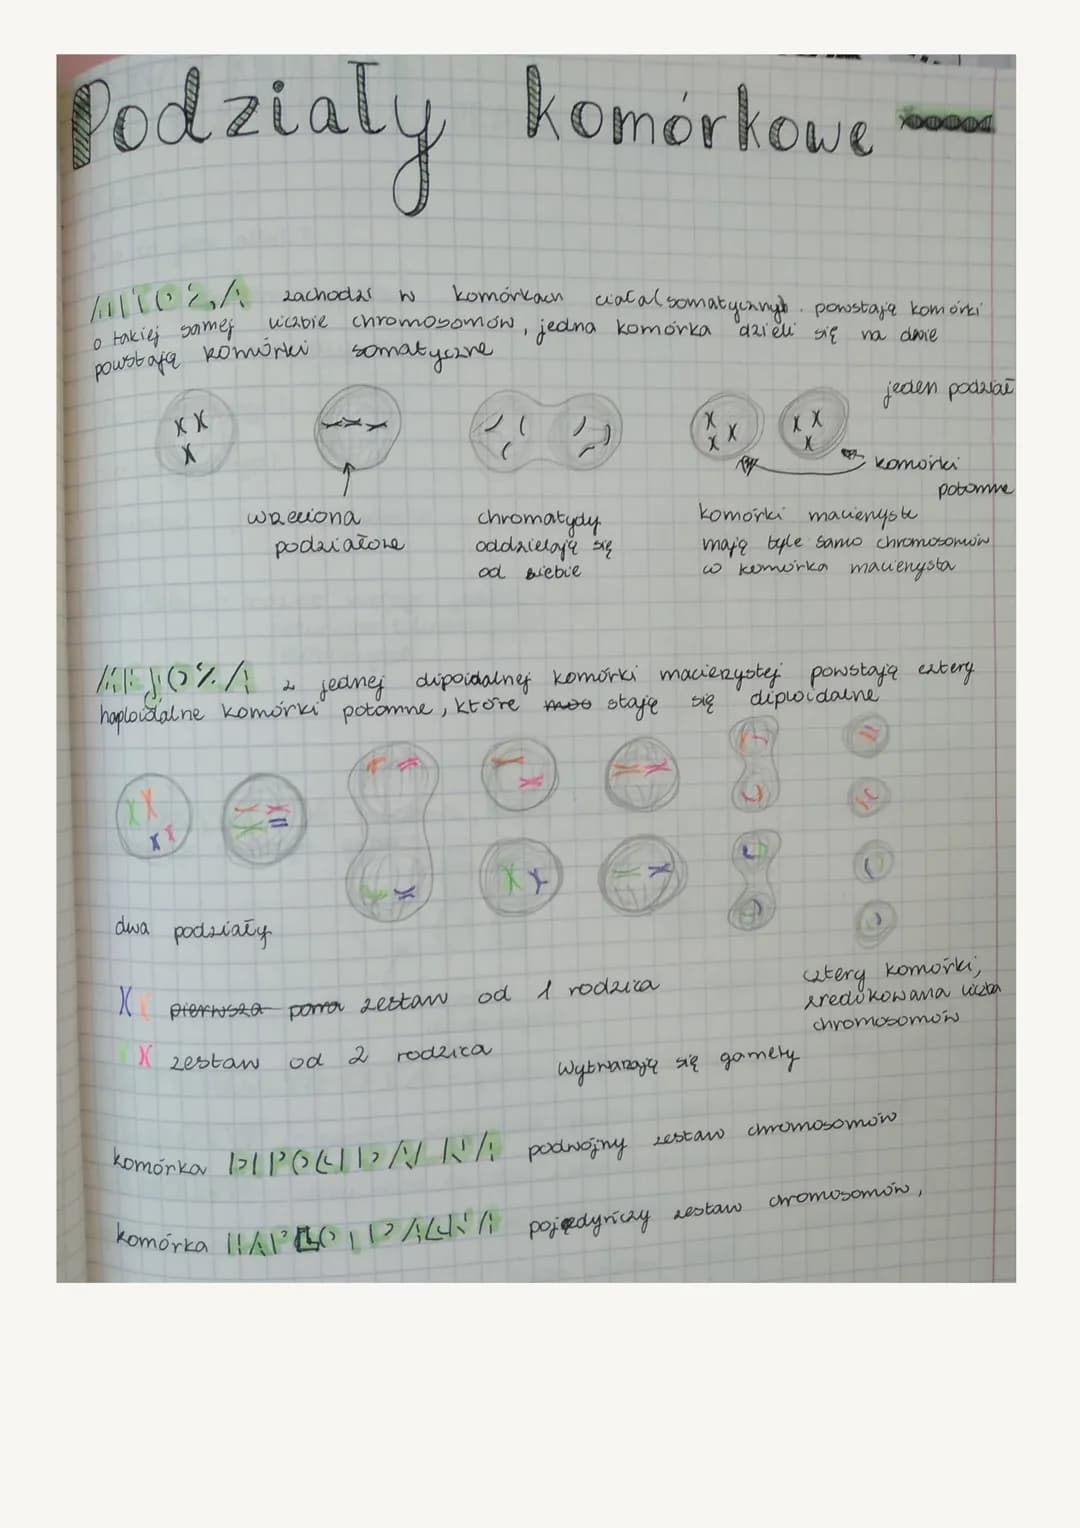 Podziały komórkowe
MITOZA zachodzi w komórkach ciała (somatycznych. powstają komórki
o takiej samej liczbie chromosomów, jedna komórka dzieli się na dwie
powstają komórki somatyczne
jeden podział
komórki
potomne
wrzeciona
podziałowe
chromatydy
oddzielają się
od siebie
komórki macierzyste
mają tyle samo chromosomów
co komórka macierzysta
MEJOZA z jednej dipoidalnej komórki macierzystej powstają cztery
haploidalne komórki potomne, które stają się diploidalne
dwa podziały
cztery komórki,
zredukowana liczba
chromosomów
pierwsza para zestaw od 1 rodzica
zestaw od 2 rodzica
Wytwarzają się gamety
komórka DIPOLIDALNA podwójny zestaw chromosomów
komórka HAPLOIDALNA pojedyńczy zestaw chromosomów,